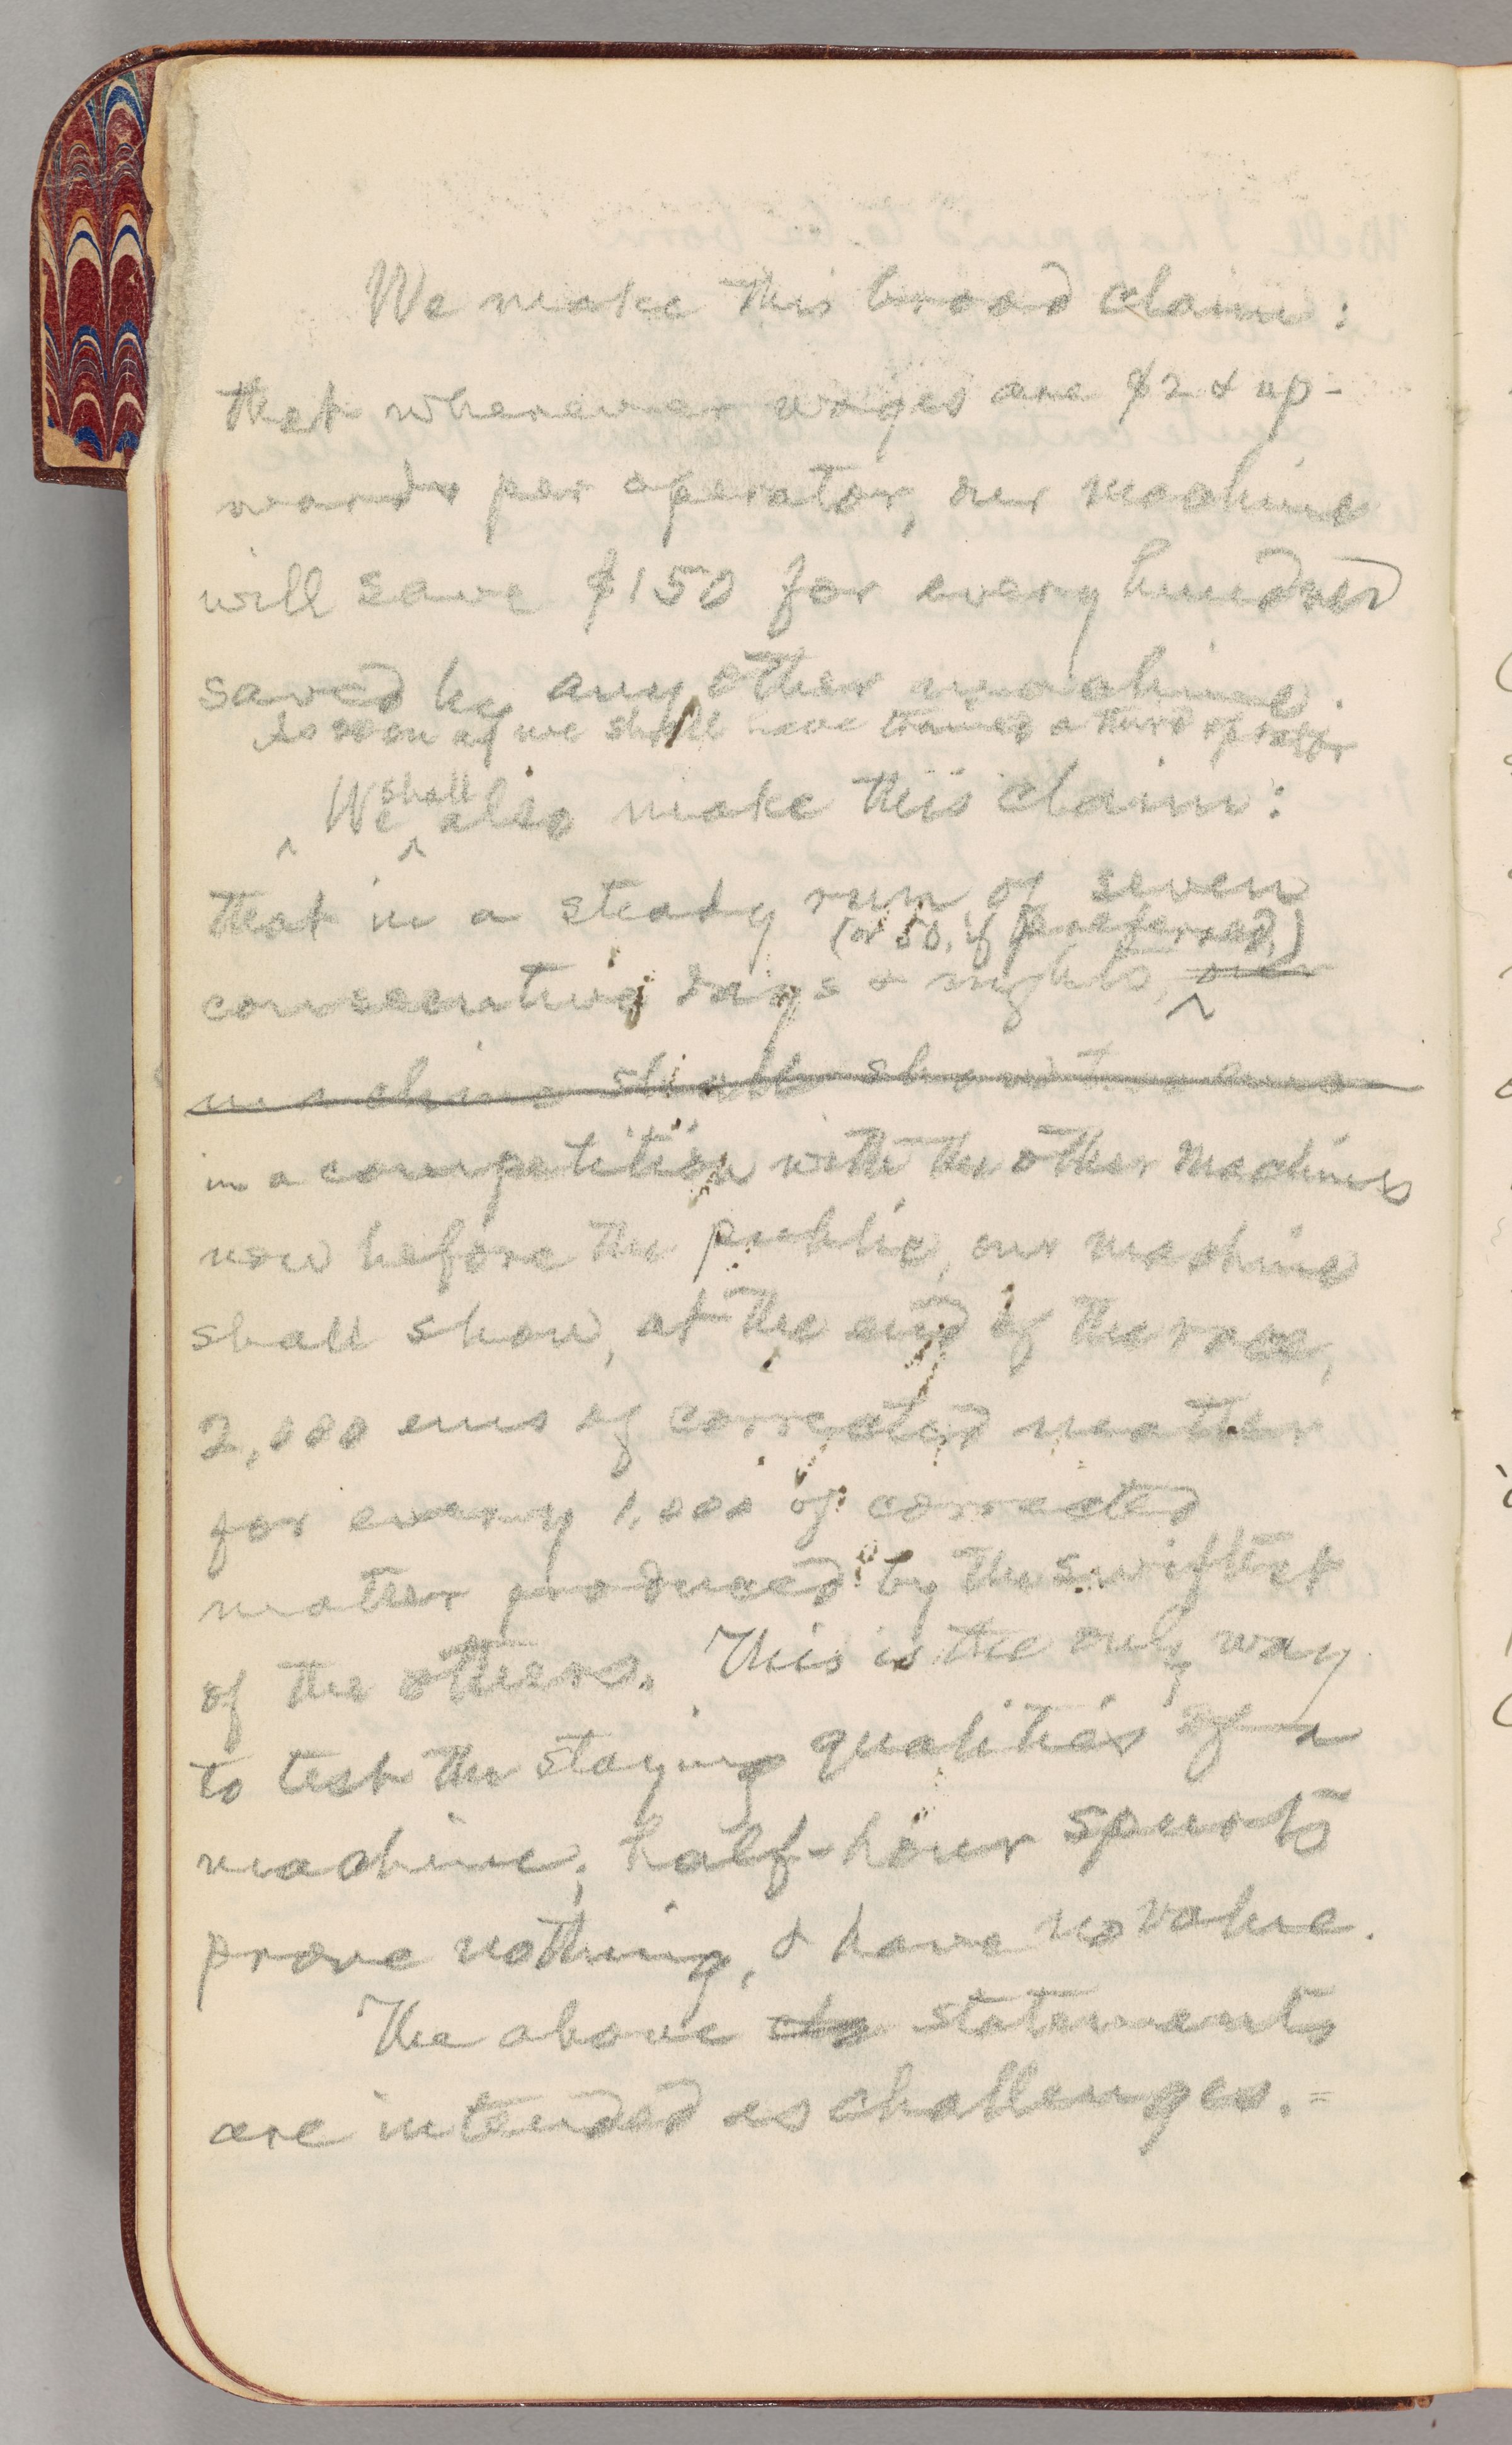 We make this broad claim:
that wherever wages are $2 & up-
wards per operator, our machine
will save $150 for every hundred
saved by any other machine.
As soon as we shall have trained a third operator
We shall also make this claim:
that in a steady run of seven
(or 50, if preferred,)
consecutive days & nights, our
machine shall show two ems
in a competition with the other machines
now before the public, our machine
shall show, at the end of the race,
2,000 ems of corrected matter
for every 1,000 of corrected
matter produced by the swiftest
of the others. This is the only way
to test the staying qualities of a
machine; half-hour spurts
prove nothing, & have no value.
The above cla statements
are intended as challenges.=